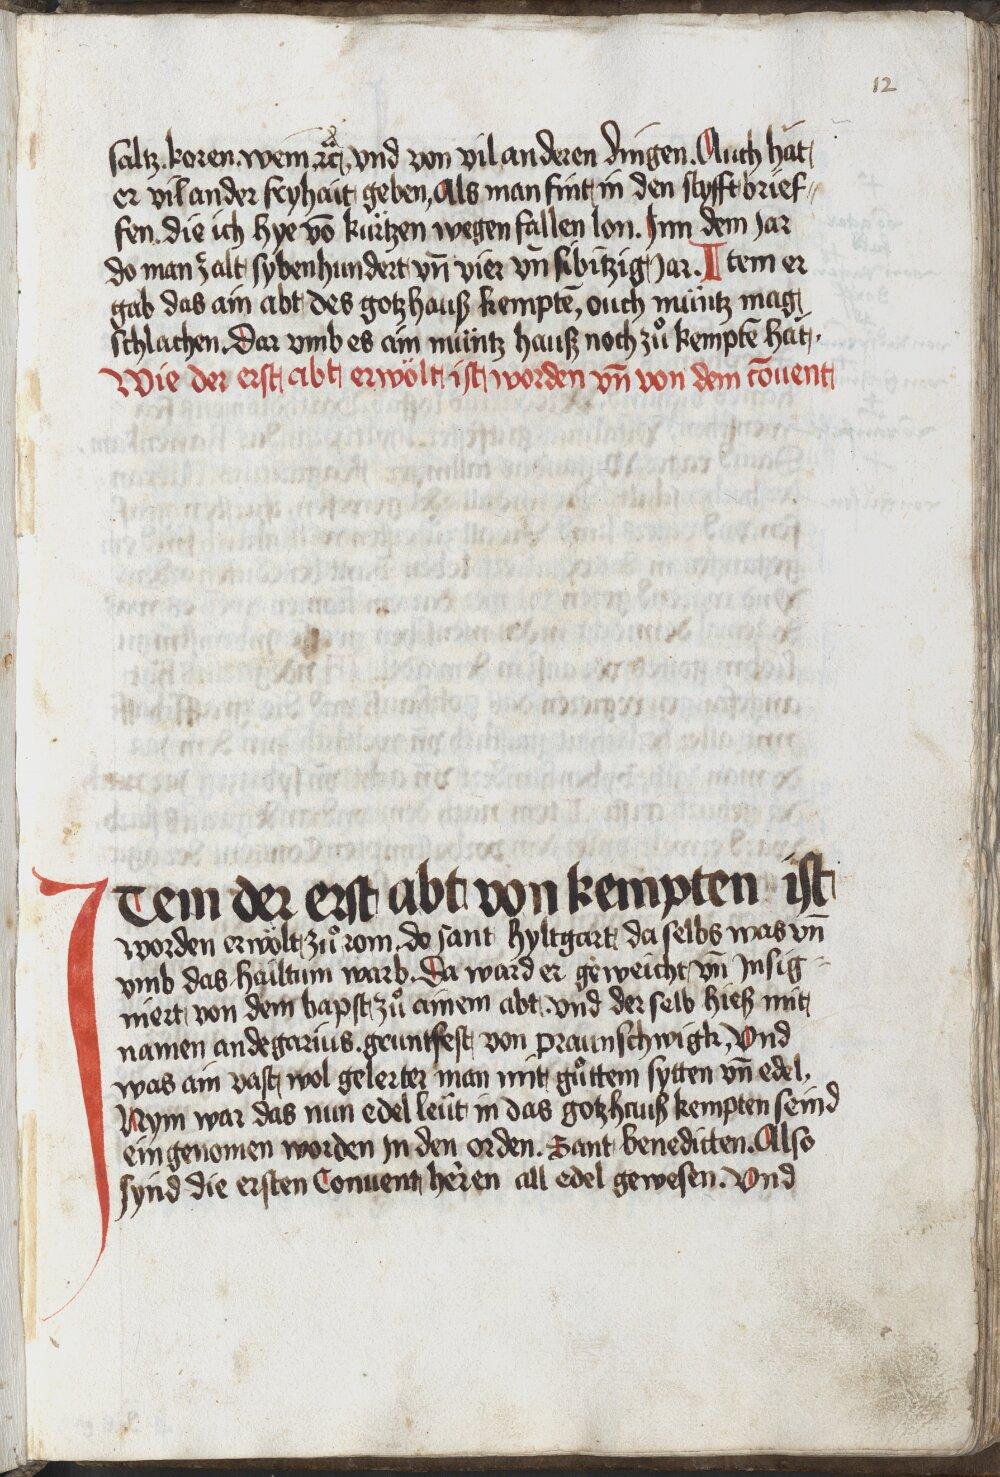 12
saltz. koren. wein. rc̃. vnd von vil anderen dingen. Auch hät
er vil ander freyhait geben, Als man fint in den styfft brief⸗
fen. die ich hye vō kürtzen wegen fallen lon. Inn dem Jar
do man zalt sybenhundert vn̄ vier vn̄ sibitzig Jar. Item er
gab das ain abt des gotzhauß kemptē, ouch müntz mag
schlachen. Dar vmb es ain müntz hauß noch zů kemptē hät.
Wie der erst abt erwölt ist worden vn̄ von dem cōuent
ITem der erst abt von kempten ist
worden erwölt zů rom. do sant hyltgart da selbs was vn̄
vmb das hailtum warb. Da ward er geweicht vn̄ Insig⸗
niert von dem bapst zů ainem abt. vnd der selb hieß mit
namen andegarius. geuntfest von praunschwigk, Vnd
was ain vast wol gelerter man mit gůttem sytten vn̄ edel,
Nym war das nun edel leüt in das gotzhauß kempten seind
ein genomen worden In den orden. Sant benedicten. Also
synd die ersten Conuent heren all edel gewesen. Vnd